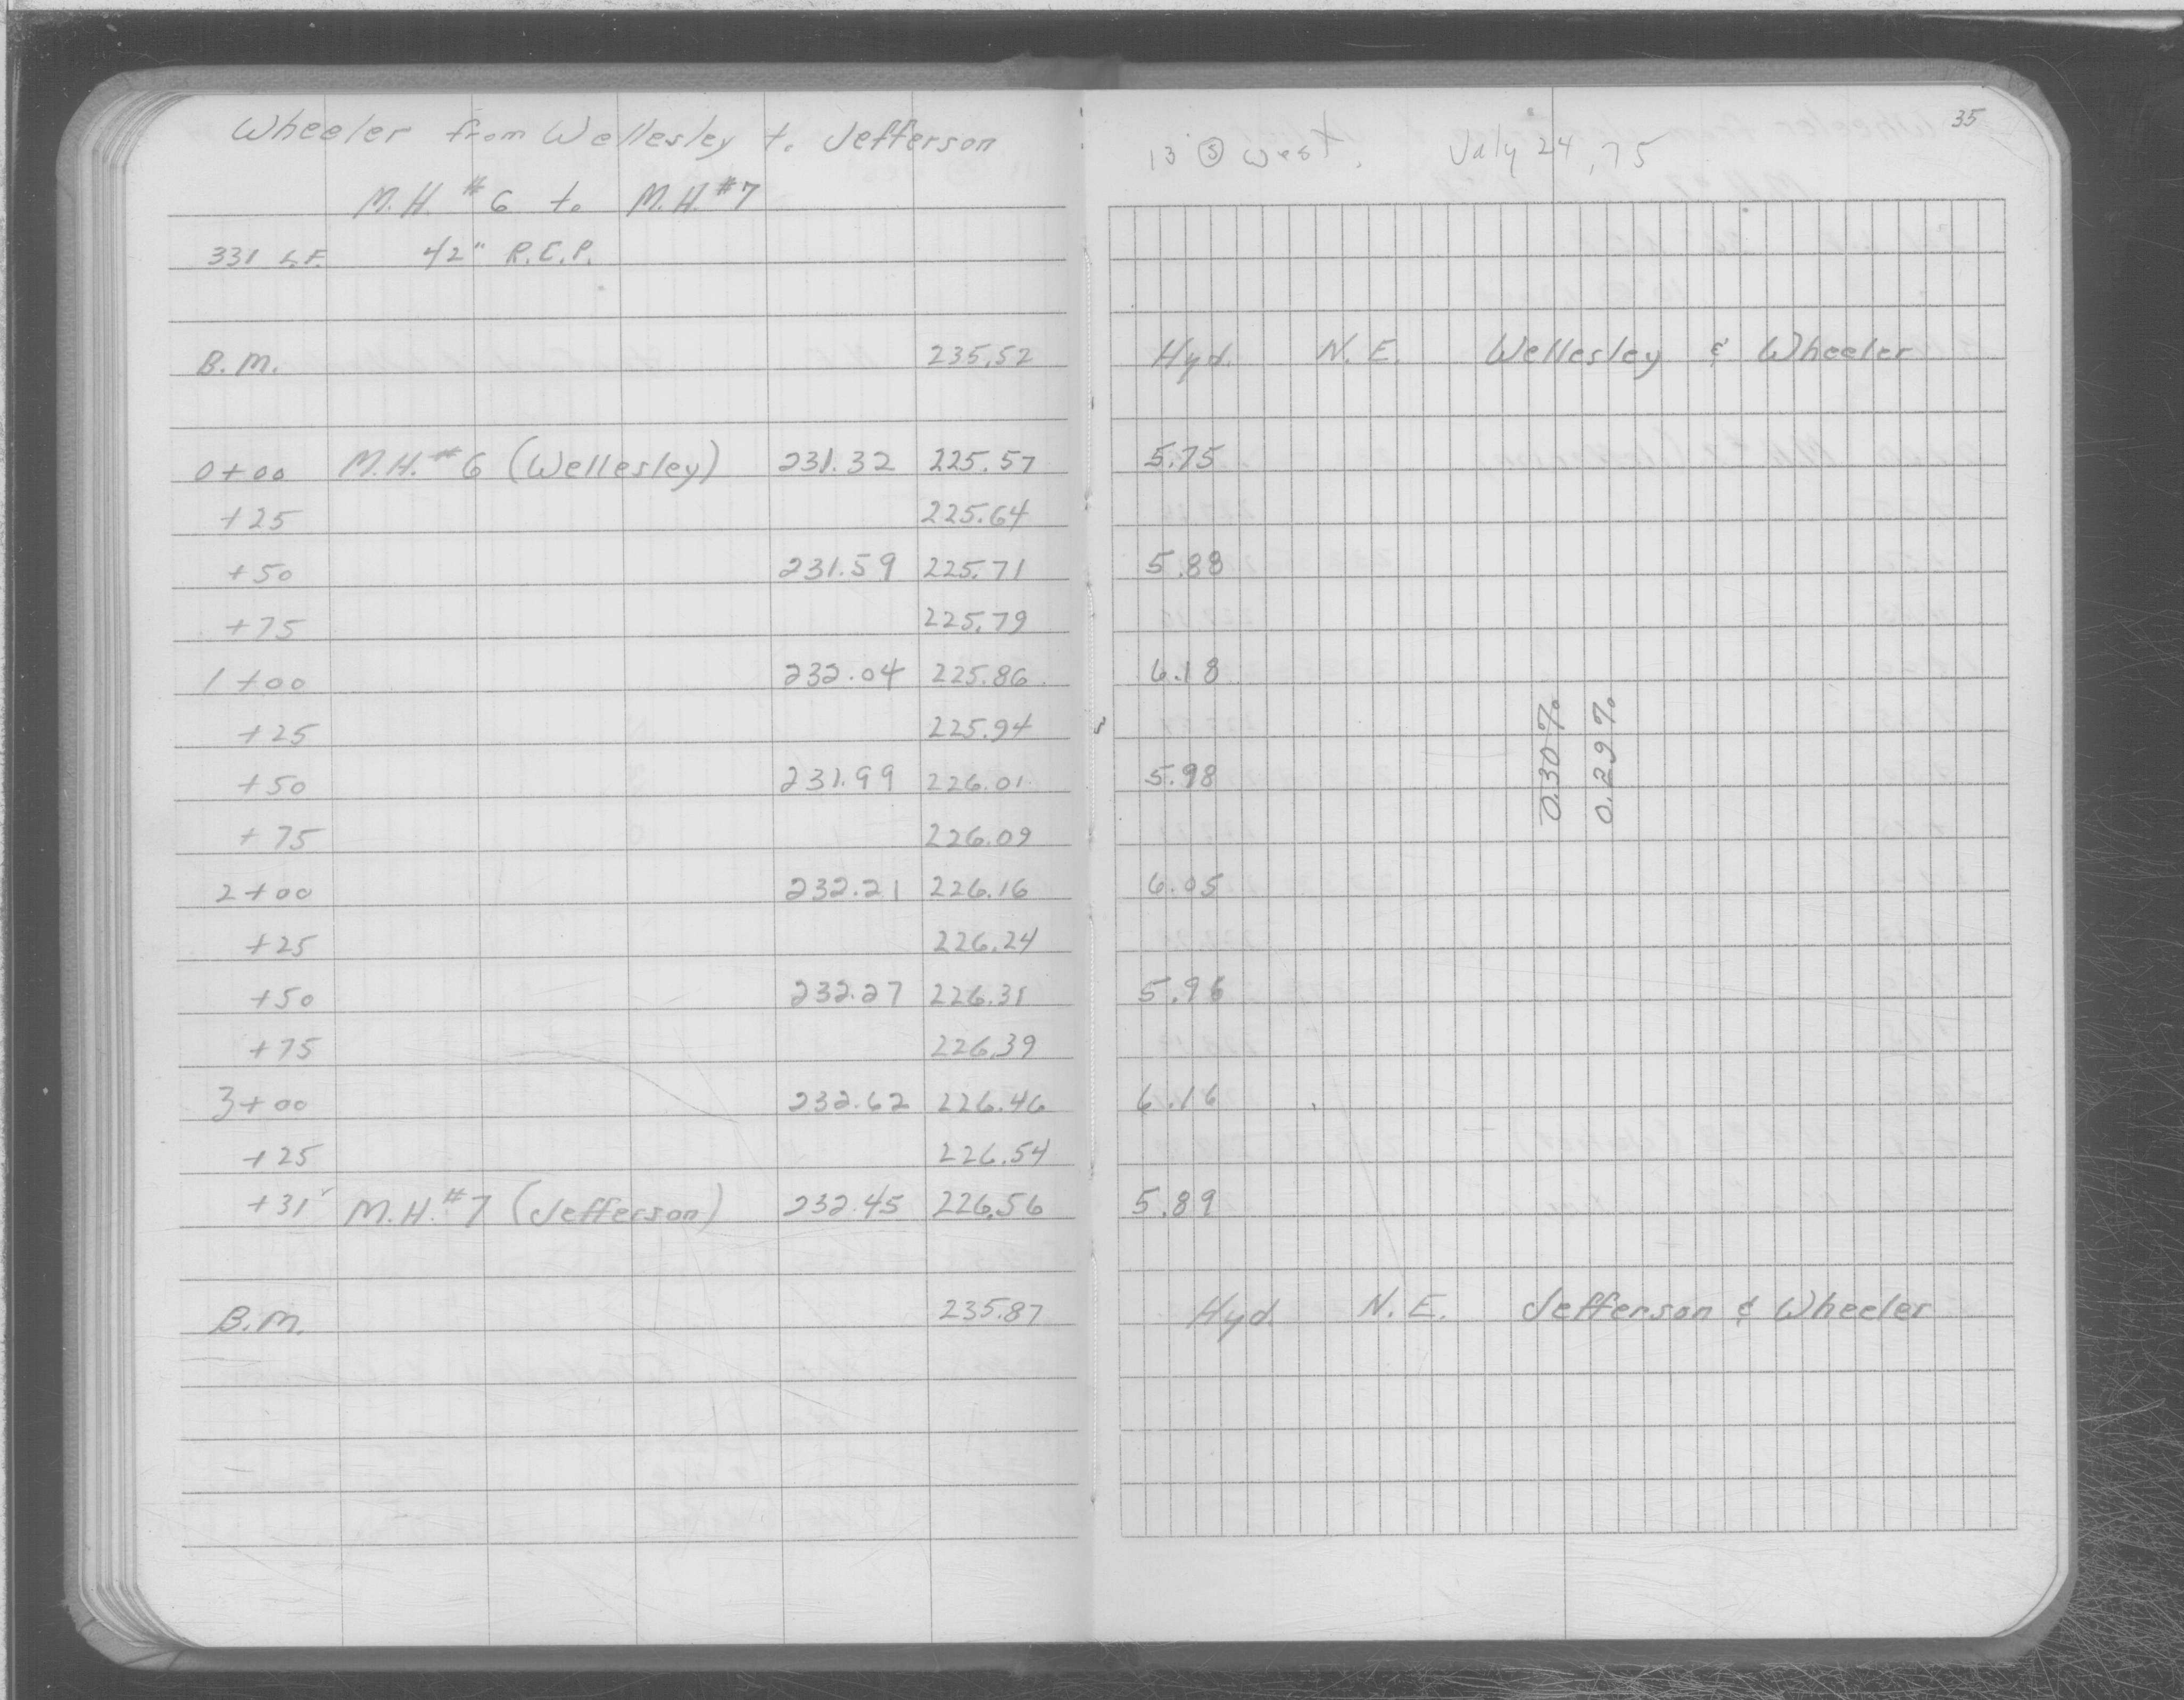 Wheeler from Wellesley to Jefferson
M.H. #6 to M.H. #7
331 L.F. 42" R.C.P.
B.M. 235.52
0+00 M.H. #6 (Wellesley) 231.32 225.57
+25 225.64
+50 231.59 225.71
+75 225.79
1+00 232.04 225.86
+25 225.94
+50 231.99 226.01
+75 226.09
2+00 232.21 226.16
+25 226.24
+50 232.27 226.31
+75 226.39
3+00 232.62 226.46
+25 226.54
+31 M.H. #7 (Jefferson) 232.45 226.56
B.M. 235.87
35
13' Ⓢ West. July 24, 75
Hyd. N.E. Wellesley & Wheeler
5.75
5.88
6.18
5.98
6.05
5.96
6.16
5.89
0.30%
0.29%
Hyd. N.E. Jefferson & Wheeler